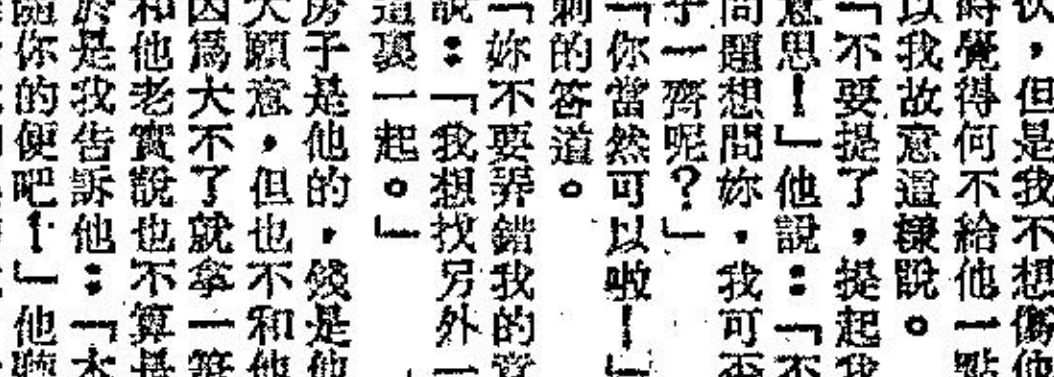 ，但是我不想傷他
時覺得何不給他一點
以我故意這樣說。
「不要提了，提起我
意思！」他說：「不
問題想問妳，我可否
子一齊呢？」
「你當然可以啦！」
刺的答道。
「妳不要弄錯我的意
說：「我想找另外一
這裏一起。」
房子是他的，錢是他
大願意，但也不和他
因爲大不了就拿一筆
和他老實說也不算是
於是我告訴他：「本
隨你的便吧！」他聽